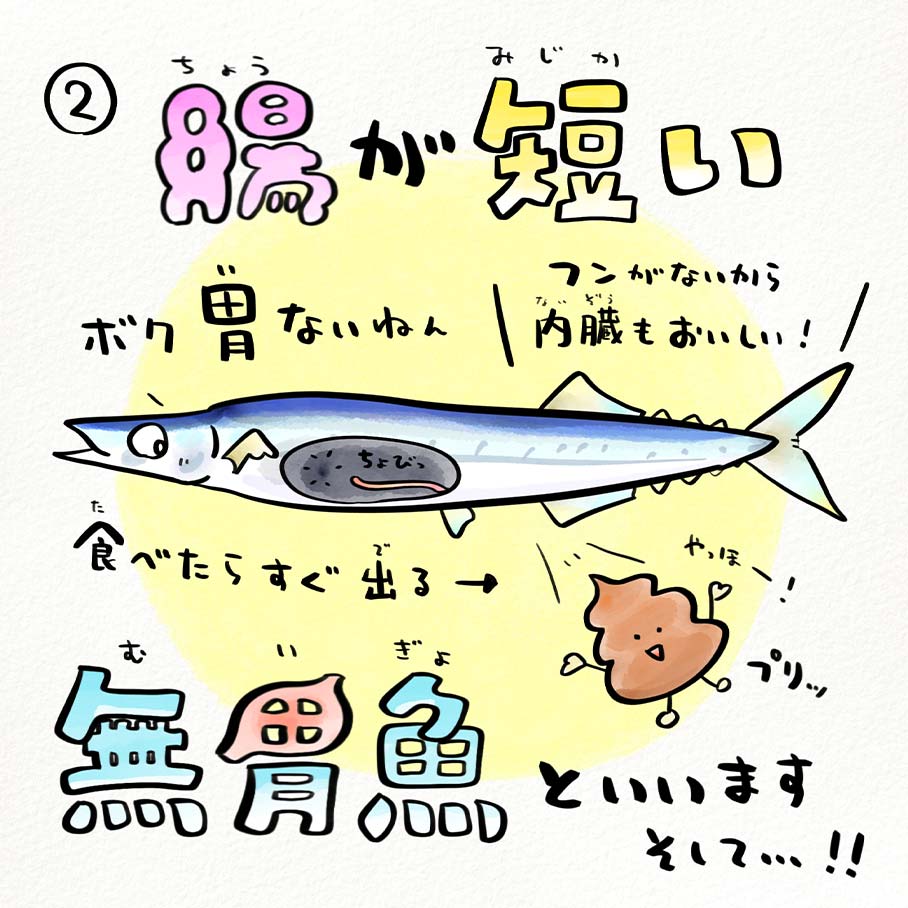 ②
ちょう みじか
腸が短い
ボク胃ないねん
い
フンがないから
ないぞう
内臓もおいしい!
ちょびっ
た で
食べたらすぐ出る→
やっほー!
プリッ
む い ぎょ
無胃魚
といいます
そして…!!